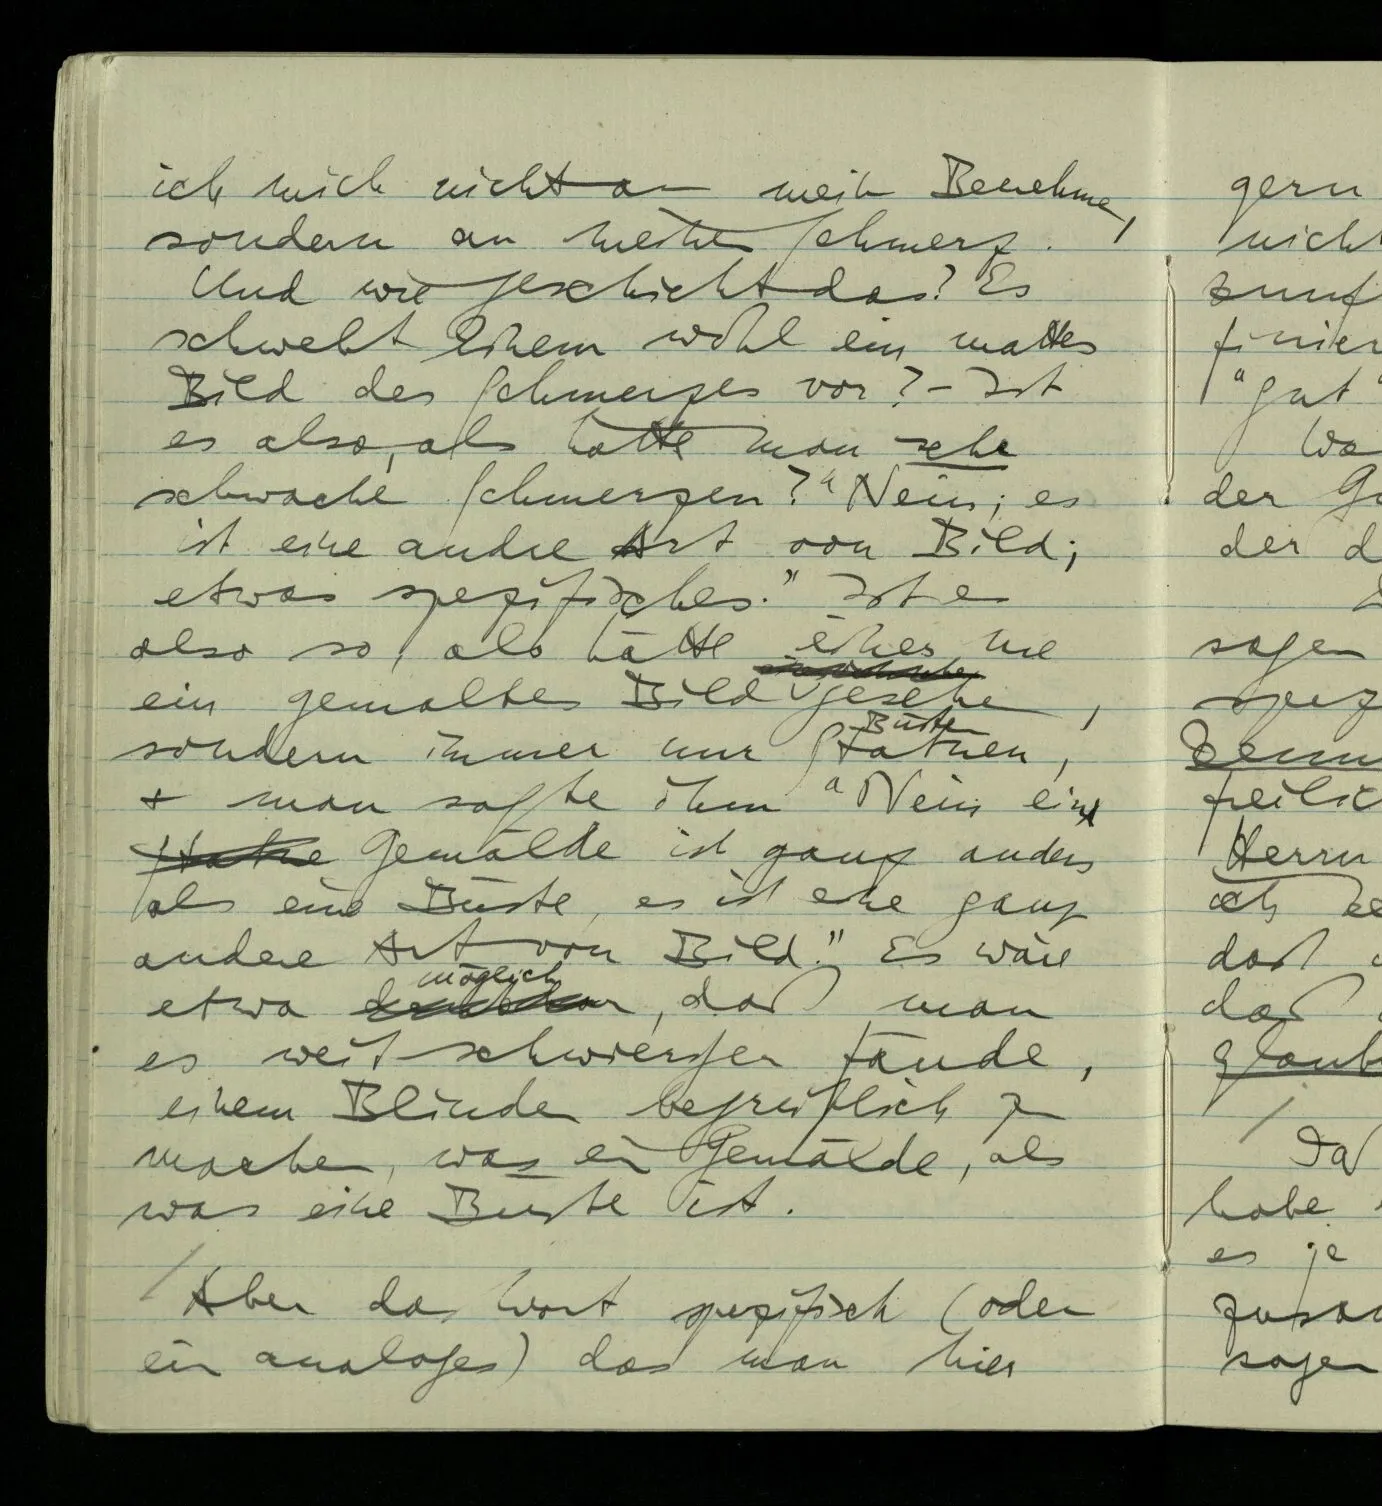 ich mich nicht an mein Benehmen,
sondern an meinen Schmerz.
Und wie geschieht das? Es
schwebt Einem wohl ein mattes
Bild des Schmerzes vor? – Ist
es also, als hätte man sehr
schwache Schmerzen? "Nein; es
ist eine andre Art von Bild;
etwas spezifisches." Ist es
also so, als hätte einer nie
ein gemaltes Bild gesehen,
Büsten
sondern immer nur Statuen,
+ man sagte ihm "Nein ein
Statue Gemälde ist ganz anders
als eine Büste, es ist eine ganz
andere Art von Bild." Es wäre
möglich
etwa, daß man
es weit schwieriger fände,
einem Blinden begreiflich zu
machen, was ein Gemälde, als
was eine Büste ist.
/
Aber das Wort spezifisch (oder
ein analoges) das man hier
gern
nicht
"gut"
der
der d
sagen
Herrn
daß
daß
/
habe
es je
sagen